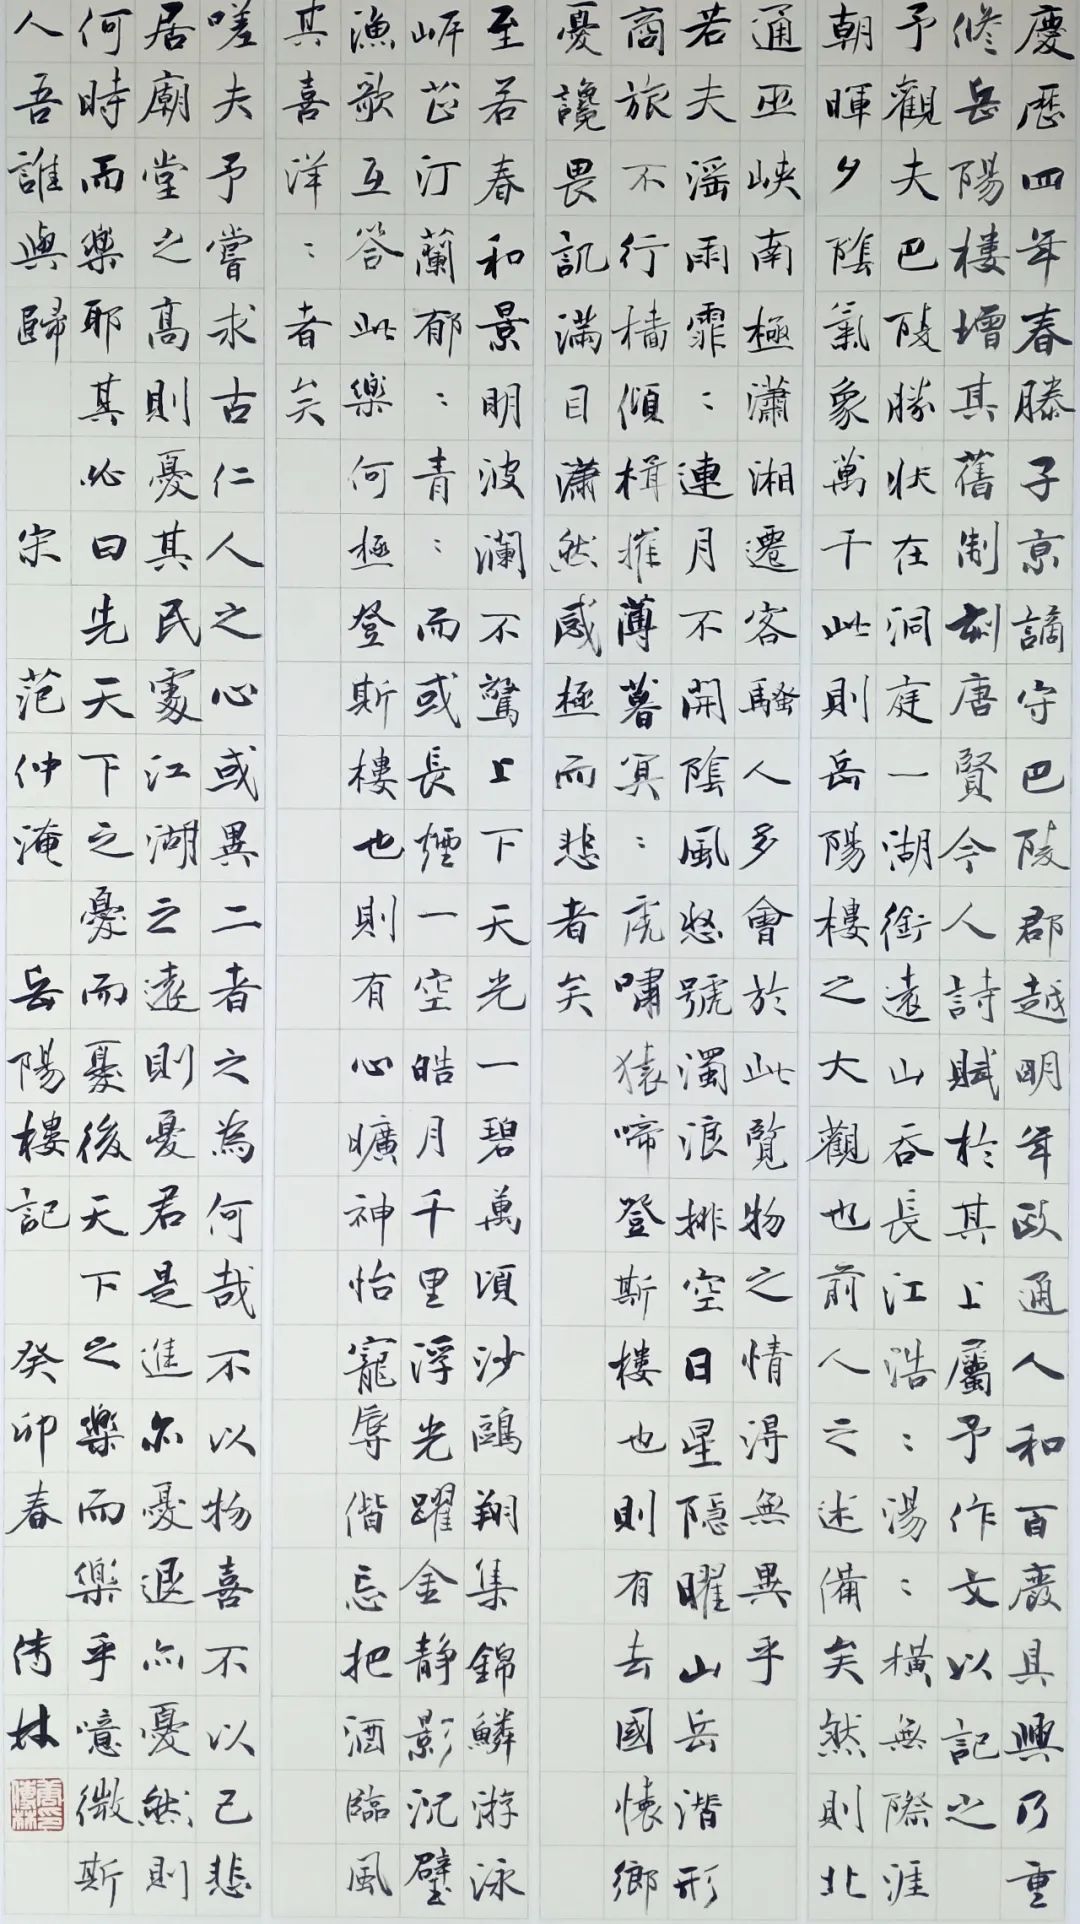 慶歷四年春滕子京謫守巴陵郡越明年政通人和百廢具興乃重
修岳陽樓增其舊制刻唐賢今人詩賦於其上屬予作文以記之
予觀夫巴陵勝狀在洞庭一湖銜遠山吞長江浩：湯：橫無際涯
朝暉夕陰氣象萬千此則岳陽樓之大觀也前人之述備矣然則北
通巫峽南極瀟湘遷客騷人多會於此覽物之情得無異乎
若夫滛雨霏：連月不開陰風怒號濁浪排空日星隱曜山岳潛形
商旅不行檣傾楫摧薄暮冥：虎嘯猿啼登斯樓也則有去國懷鄉
憂讒畏譏滿目瀟然感極而悲者矣
至若春和景明波瀾不驚上下天光一碧萬頃沙鷗翔集錦鱗游泳
岍芷汀蘭郁：青：而或長煙一空皓月千里浮光躍金静影沉璧
漁歌互答此樂何極登斯樓也則有心曠神怡寵辱偕忘把酒臨風
其喜洋：者矣
嗟夫予嘗求古仁人之心或異二者之為何哉不以物喜不以己悲
居廟堂之高則憂其民處江湖之遠則憂君是進亦憂退亦憂然則
何時而樂耶其必曰先天下之憂而憂後天下之樂而樂乎噫微斯
人吾誰與歸 宋 范仲淹 岳陽樓記 癸卯春 傳林